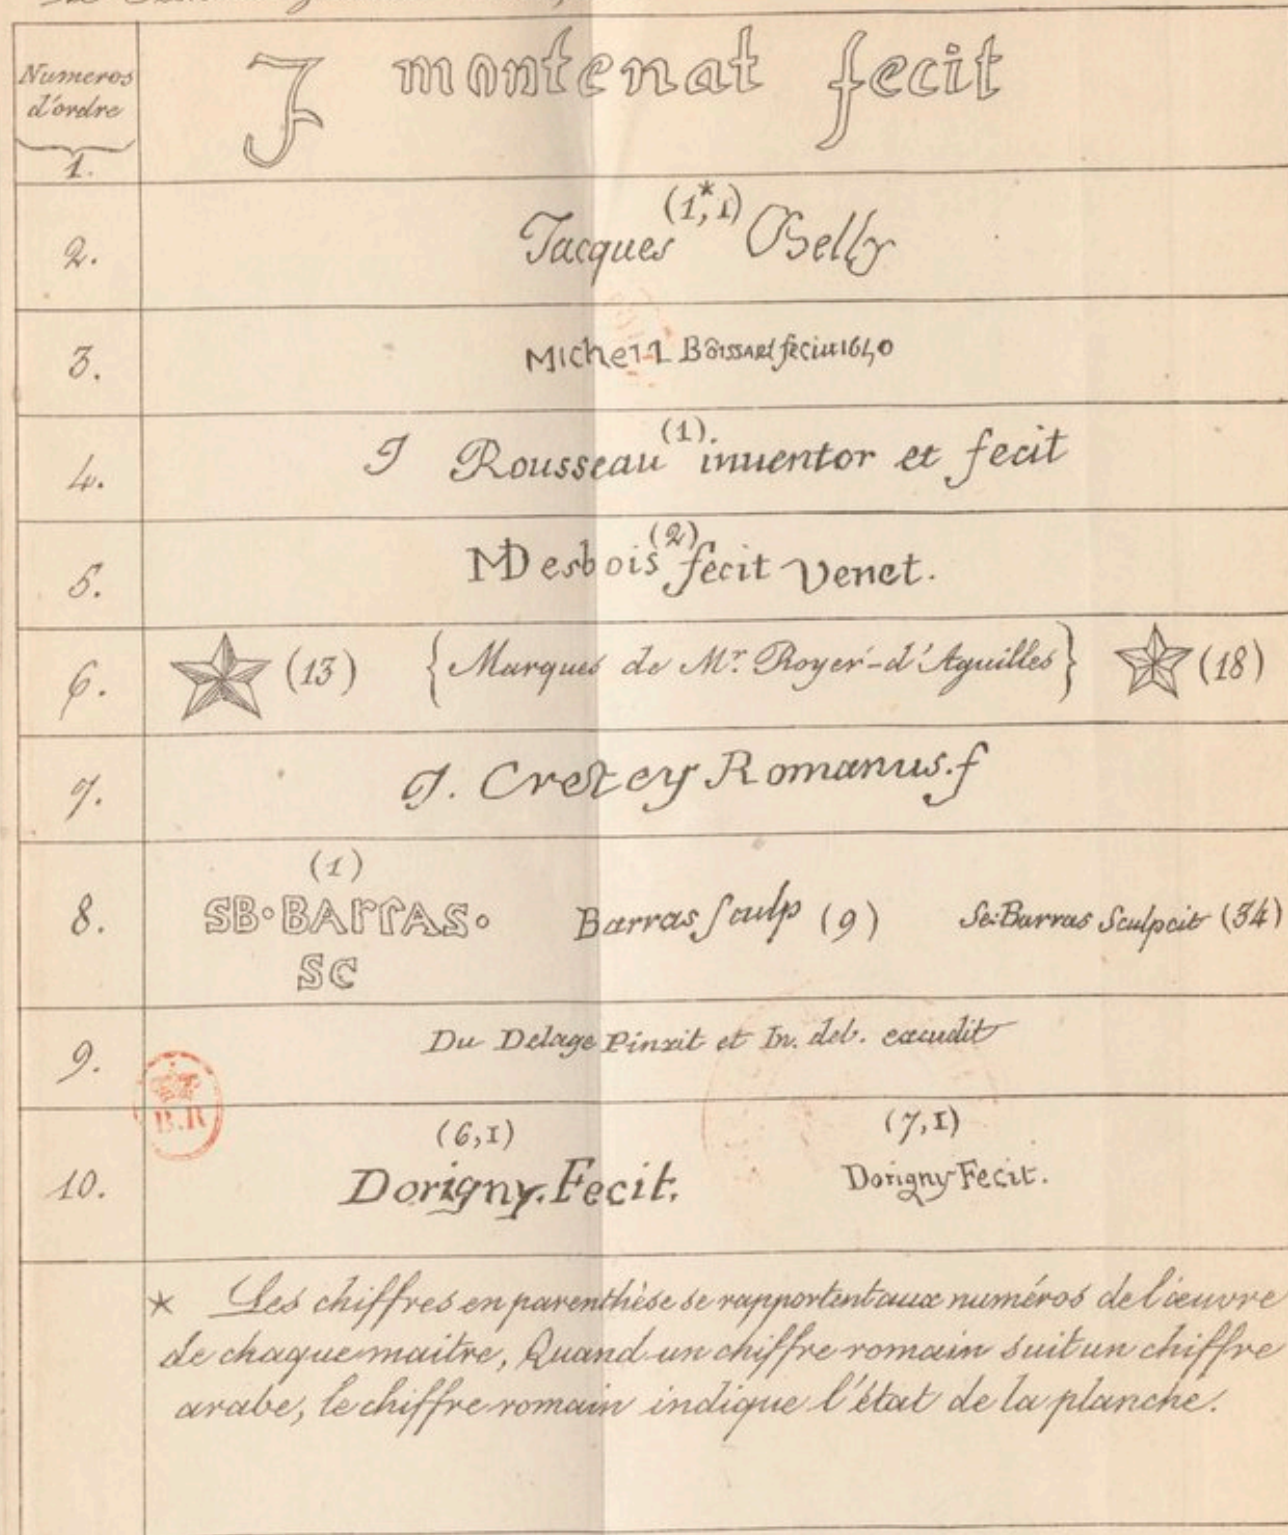 Numeros
d'ordre
1.
J montenat fecit
2.
Jacques (1*,I) Belly
3.
Michell Boissart feciit 1640
4.
J Rousseau (1). inuentor et fecit
5.
MDesbois (2) fecit Venet.
6.
(13) {Marques de Mr. Boyer-d'Aguilles} (18)
7.
J. Cretey Romanus. f
8.
(1)
SB·BARRAS· Barras Sculp (9) Se: Barras Sculpcit (34)
SC
9.
Du Delage Pinxit et In. del. excudit
10.
(6,I) (7,I)
Dorigny. Fecit. Dorigny Fecit.
B.R
* Les chiffres en parenthèse se rapportent aux numéros de l'œuvre
de chaque maitre, Quand un chiffre romain suit un chiffre
arabe, le chiffre romain indique l'état de la planche.